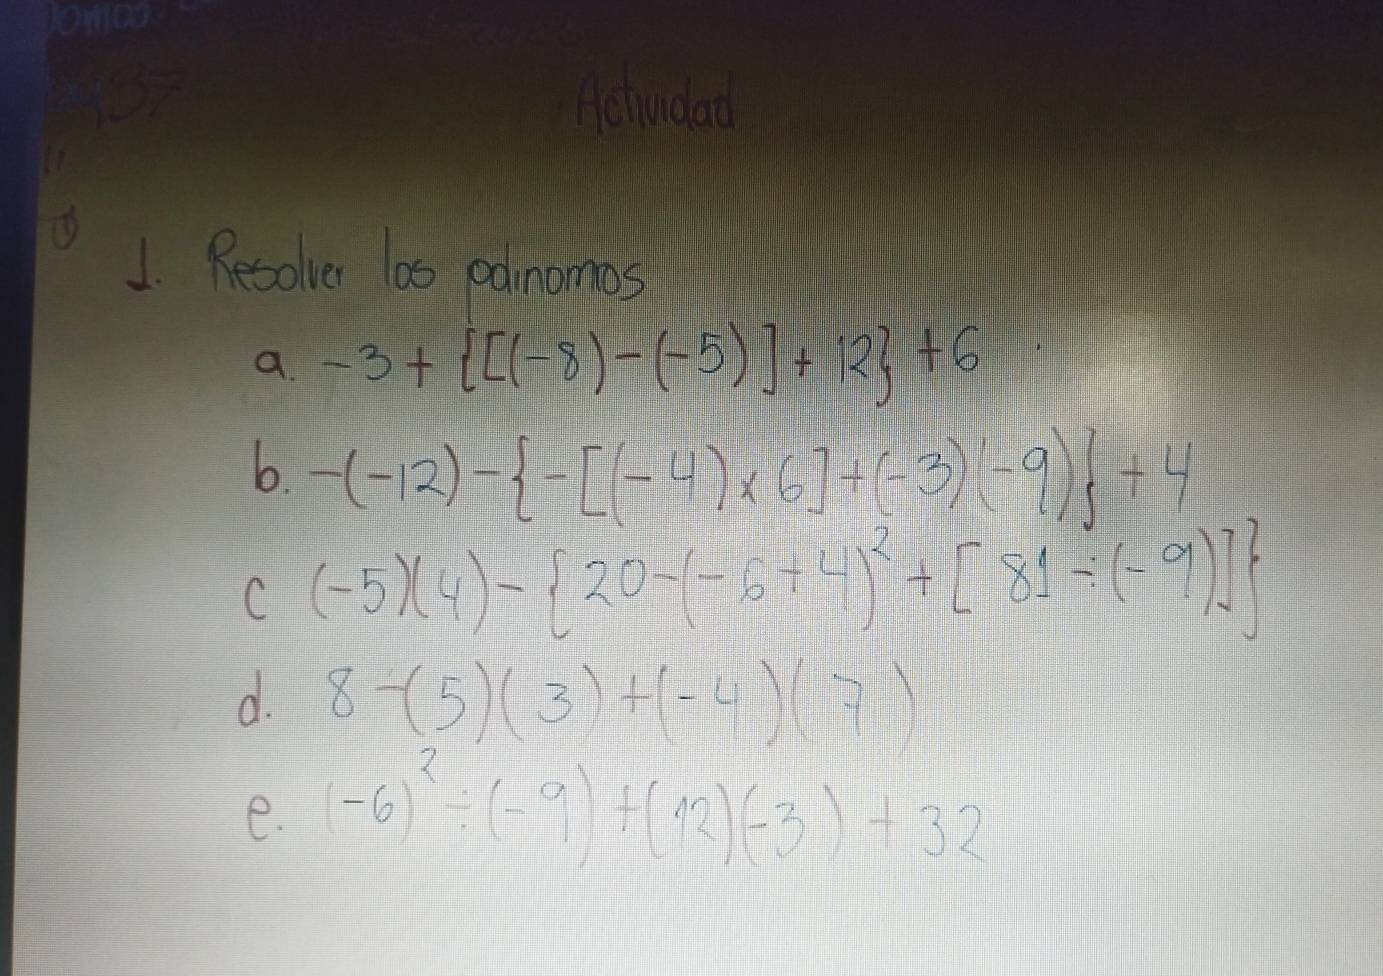 Actividad
1. Resolver los polinomios
a. -3+{[(-8)-(-5)]+12}+6
b. -(-12)-{-[(-4)x6]+(-3)(-9)}+4
c (-5)(4)-{20-(-6+4)²+[81÷(-9)]}
d. 8-(5)(3)+(-4)(7)
e. (-6)²÷(-9)+(12)(-3)+32